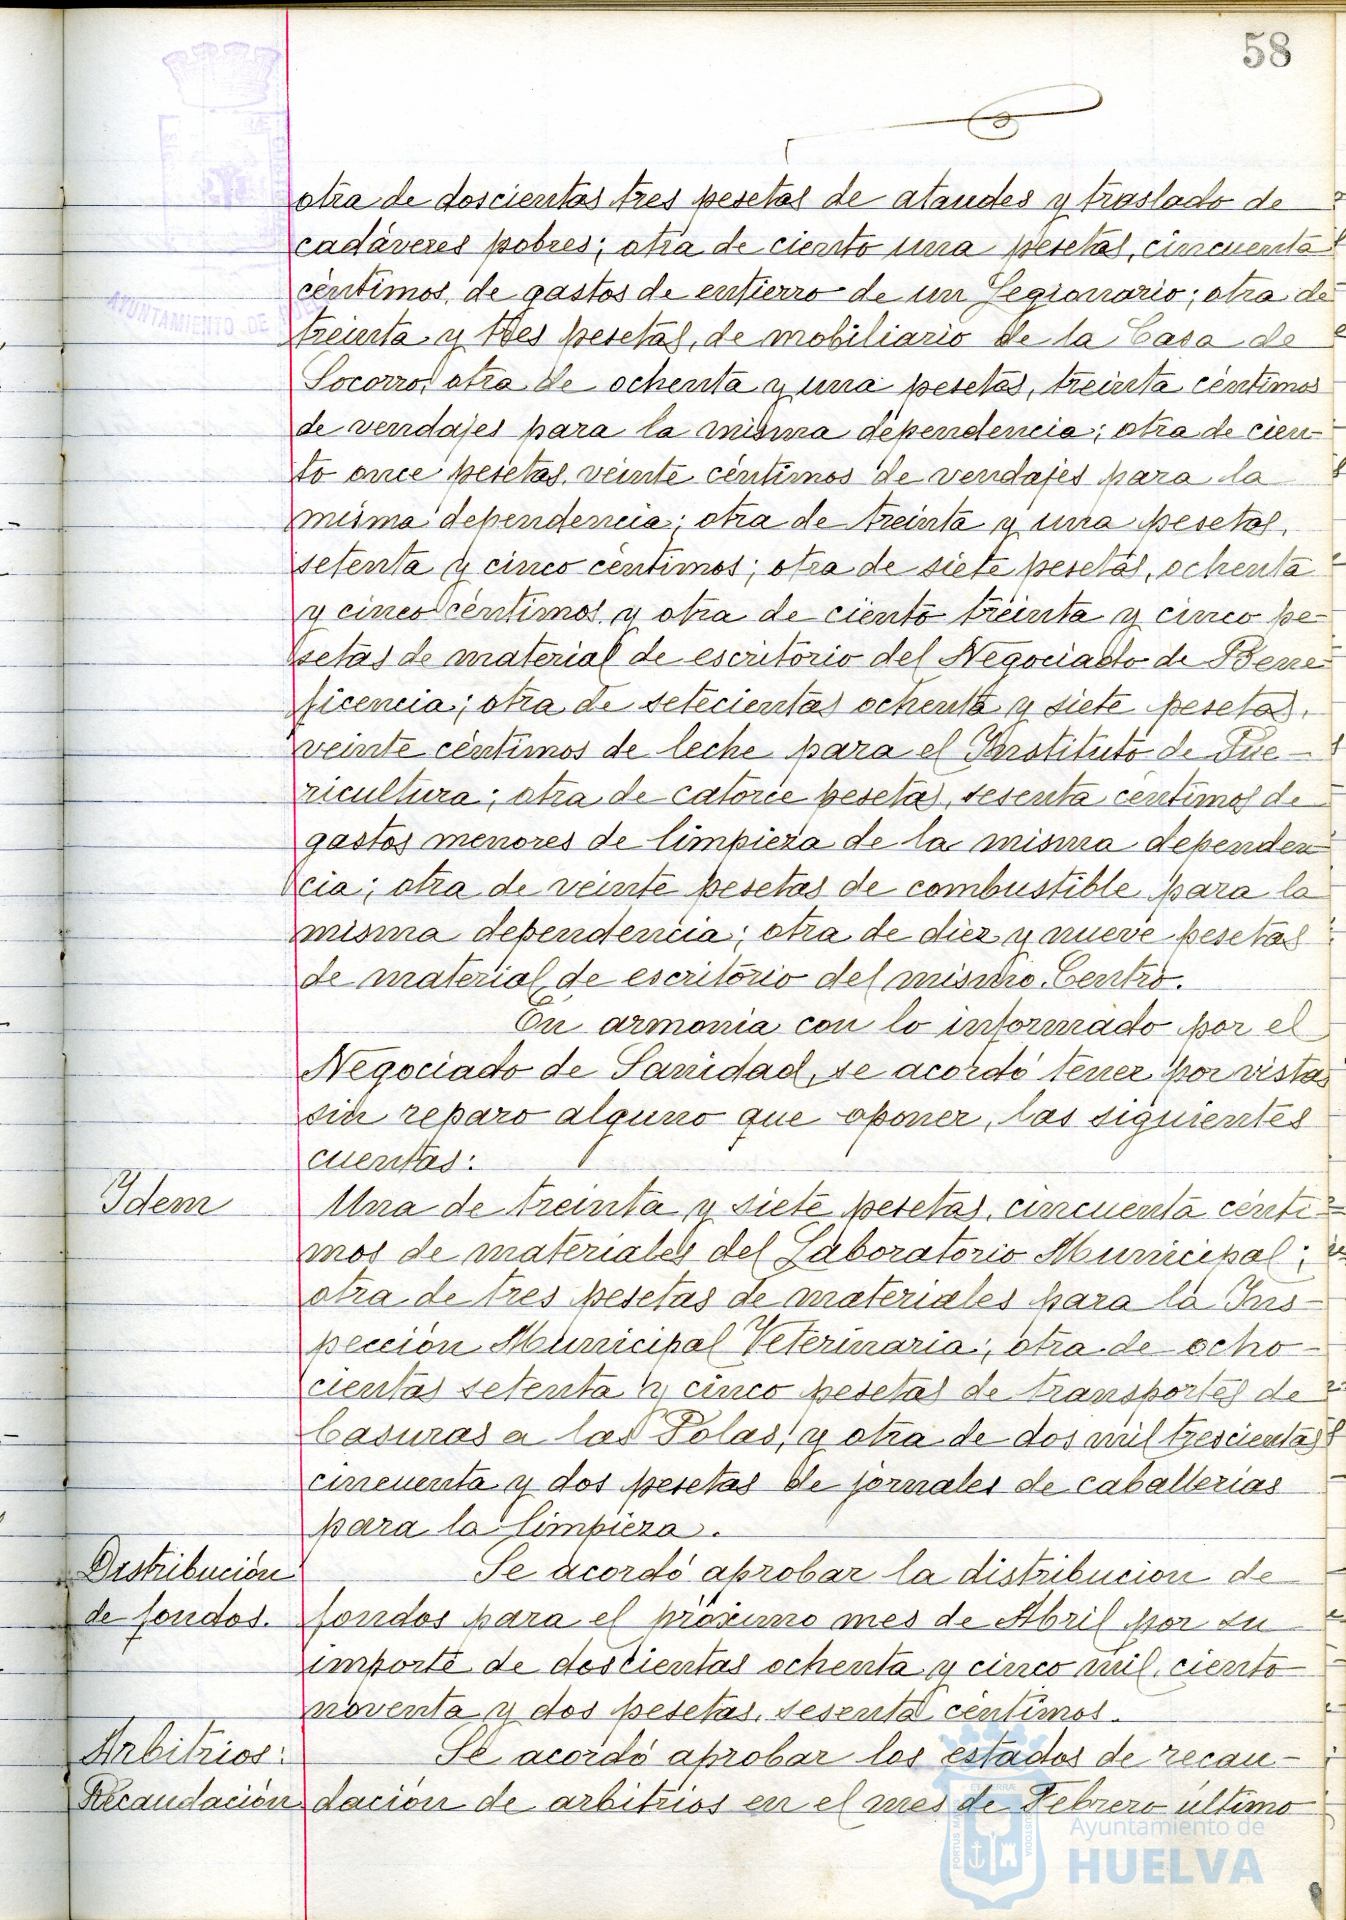 58
otra de doscientas tres pesetas de ataudes y traslado de
cadáveres pobres; otra de ciento una pesetas, cincuenta
céntimos, de gastos de entierro de un Legionario; otra de
treinta y tres pesetas, de mobiliario de la Casa de
Socorro; otra de ochenta y una pesetas, treinta céntimos
de vendajes para la misma dependencia; otra de cien-
to once pesetas, veinte céntimos de vendajes para la
misma dependencia; otra de treinta y una pesetas,
setenta y cinco céntimos; otra de siete pesetas, ochenta
y cinco céntimos, y otra de ciento treinta y cinco pe-
setas de material de escritorio del Negociado de Bene-
ficencia; otra de setecientas ochenta y siete pesetas,
veinte céntimos de leche para el Instituto de Pue-
ricultura; otra de catorce pesetas, sesenta céntimos de
gastos menores de limpieza de la misma dependen-
cia; otra de veinte pesetas de combustible para la
misma dependencia; otra de diez y nueve pesetas
de material de escritorio del mismo Centro.
En armonia con lo informado por el
Negociado de Sanidad, se acordó tener por vistas
sin reparo alguno que oponer, las siguientes
cuentas:
Idem
Una de treinta y siete pesetas, cincuenta cénti-
mos de materiales del Laboratorio Municipal;
otra de tres pesetas de materiales para la Ins-
pección Municipal Veterinaria; otra de ocho-
cientas setenta y cinco pesetas de transportes de
basuras a las Polas; y otra de dos mil trescientas
cincuenta y dos pesetas de jornales de caballerías
para la limpieza.
Distribución
de fondos.
Se acordó aprobar la distribucion de
fondos para el próximo mes de Abril por su
importe de doscientas ochenta y cinco mil, ciento
noventa y dos pesetas, sesenta céntimos.
Arbitrios:
Recaudación
Se acordó aprobar los estados de recau-
dación de arbitrios en el mes de Febrero último
AYUNTAMIENTO DE
PORTUS MARIS
ET TERRÆ
CUSTODIA
Ayuntamiento de
HUELVA